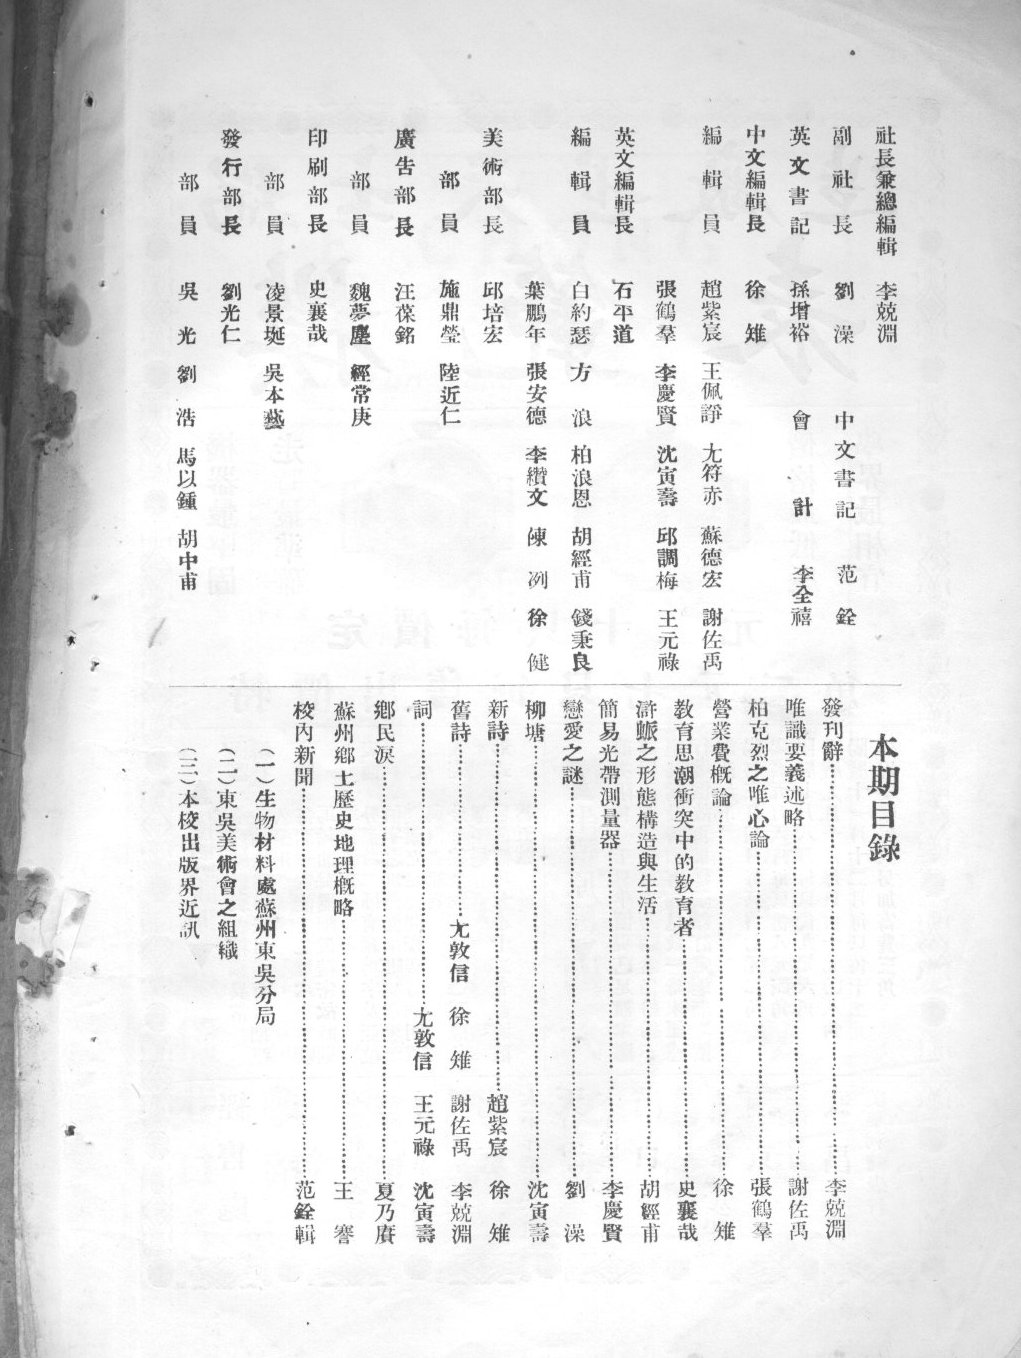 社長兼總編輯 李兢淵
副社長 劉澡 中文書記 范銓
英文書記 孫增裕 會計 李全禧
中文編輯長 徐雉
編輯員 趙紫宸 王佩諍 尤符赤 蘇德宏 謝佐禹
張鶴羣 李慶賢 沈寅壽 邱調梅 王元祿
英文編輯長 石平道
編輯員 白約瑟 方浪 柏浪恩 胡經甫 錢秉良
葉鵬年 張安德 李纘文 陳冽 徐健
美術部長 邱培宏
部員 施鼎瑩 陸近仁
廣告部長 汪葆銘
部員 魏夢塵 經常庚
印刷部長 史襄哉
部員 凌景埏 吳本藝
發行部長 劉光仁
部員 吳光 劉浩 馬以鍾 胡中甫
本期目錄
發刊辭……李兢淵
唯識要義述略……謝佐禹
柏克烈之唯心論……張鶴羣
營業費概論……徐雉
教育思潮衝突中的教育者……史襄哉
滸蚸之形態構造與生活……胡經甫
簡易光帶測量器……李慶賢
戀愛之謎……劉澡
柳塘……沈寅壽
新詩……趙紫宸 徐雉
舊詩……尤敦信 徐雉 謝佐禹 李兢淵
詞……尤敦信 王元祿 沈寅壽
鄉民淚……夏乃賡
蘇州鄉土歷史地理概略……王謇
校內新聞……范銓輯
（一）生物材料處蘇州東吳分局
（二）東吳美術會之組織
（三）本校出版界近訊